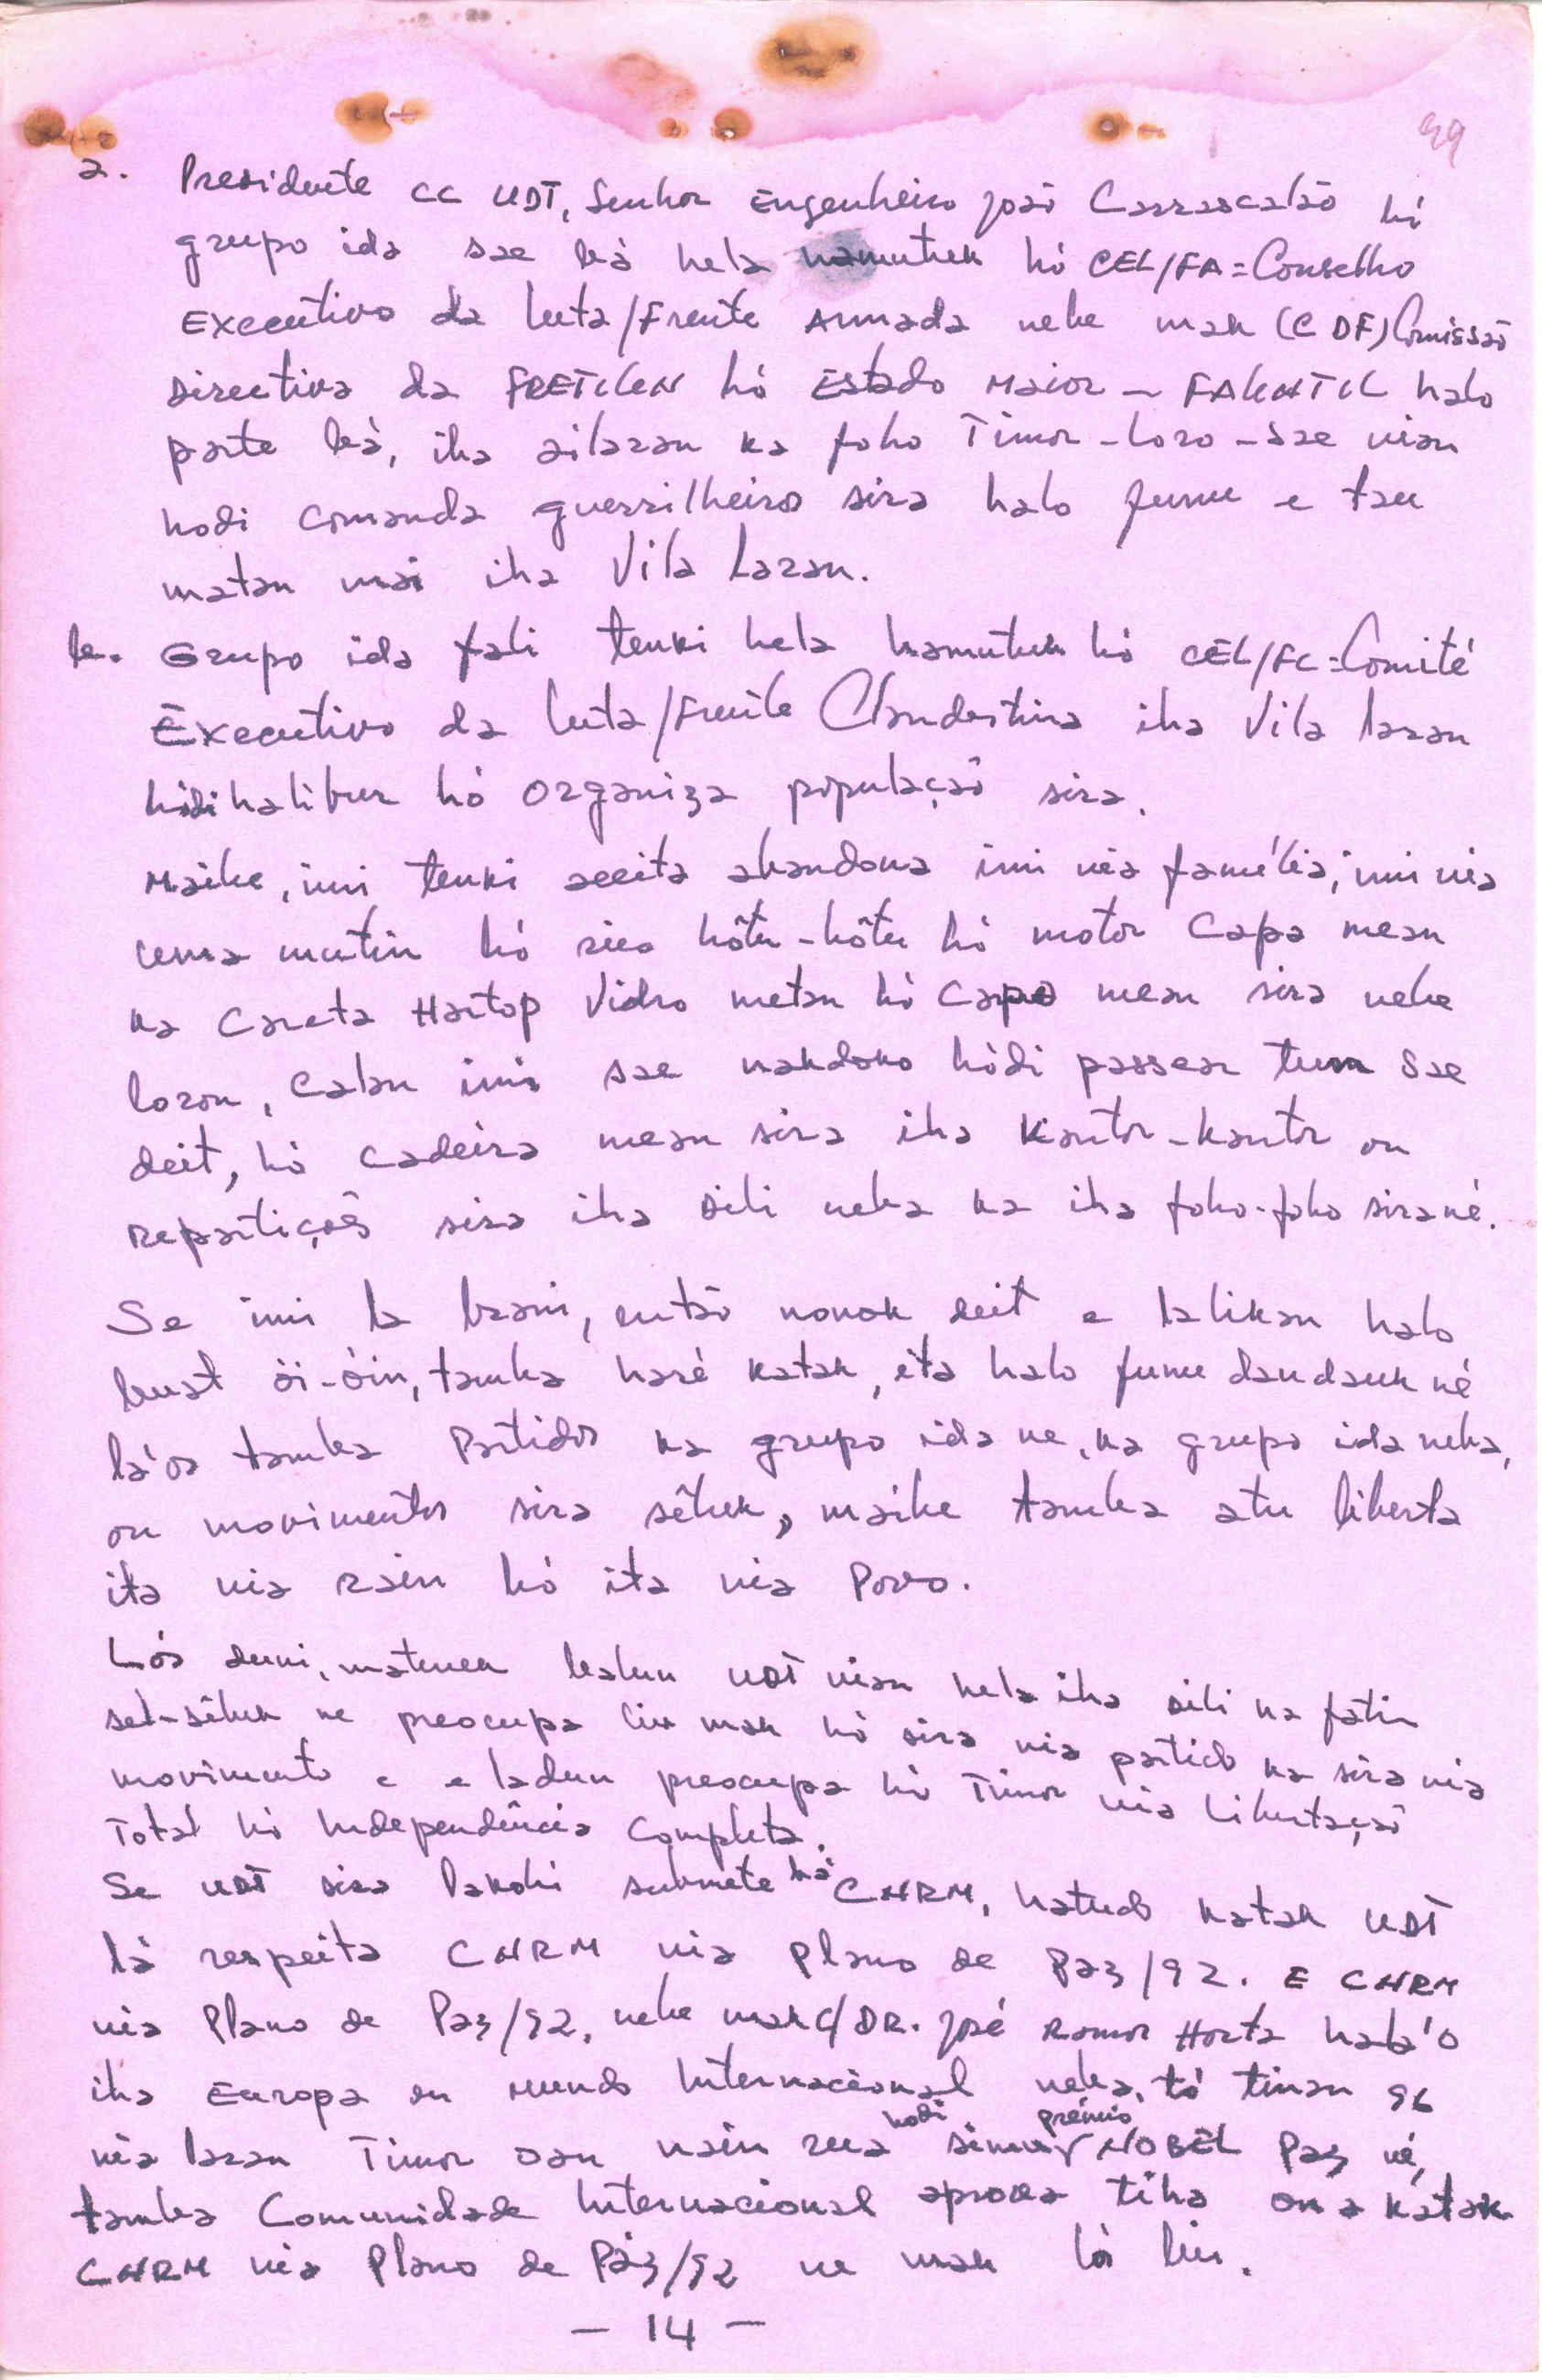 49
a. Presidente CC UDT, Senhor Engenheiro João Carrascalão hó
grupo ida sae bá hela hamutuk hó CEL/FA = Conselho
Executivo da Luta/Frente Armada nebe mak (CDF) Comissão
Directiva da FRETILIN hó Estado Maior - FALINTIL halo
parte bá, iha ailaran ka foho Timor-Loro-Sae nian
hodi comanda guerrilheiros sira halo funu e tau
matan mai iha Vila laran.
b. Grupo ida fali tenki hela hamutuk hó CEL/FC = Comité
Executivo da Luta/Frente Clandestina iha Vila laran
hódi halibur hó organiza população sira.
Maibe, imi tenki aceita abandona imi nia família, imi nia
uma mutin hó rico hôtu-hôtu hó motor Capa mean
ka Careta Hartop Vidro metan hó Capa mean sira nebe
loron, calan imi sae nakdoko hódi passear tum sae
deit, hó cadeira mean sira iha Kantor-kantor ou
repartições sira iha Dili neba ka iha foho-foho sirané.
Se imi la brani, então nonok deit e lalikan halo
buat öi-óin, tamba haré katak, ita halo funu daudauk né
lá'os tamba Partidos ka grupo ida ne, ka grupo ida neba,
ou movimentos sira sêluk, maibe tamba atu liberta
ita nia rain hó ita nia Povo.
Lós duni, matenek balun UDT nian hela iha Dili ka fatin
sel-sêluk ne preocupa liu mak hó sira nia partido ka sira nia
movimento e e ladun preocupa hó Timor nia Libertação
Total hó Independência Completa.
Se UDT sira lakohi submete bá CNRM, hatudo katak UDT
lá respeita CNRM nia Plano de Paz/92. E CNRM
nia Plano de Paz/92, nebe mak c/ DR. José Ramos Horta hala'o
iha Europa ou Mundo Internacional neba, tó tinan 96
nia laran Timor oan nain rua hodi simu prémio NOBEL Paz né,
tamba Comunidade Internacional aprova tiha ona katak
CNRM nia Plano de Páz/92 ne mak lós liu.
- 14 -